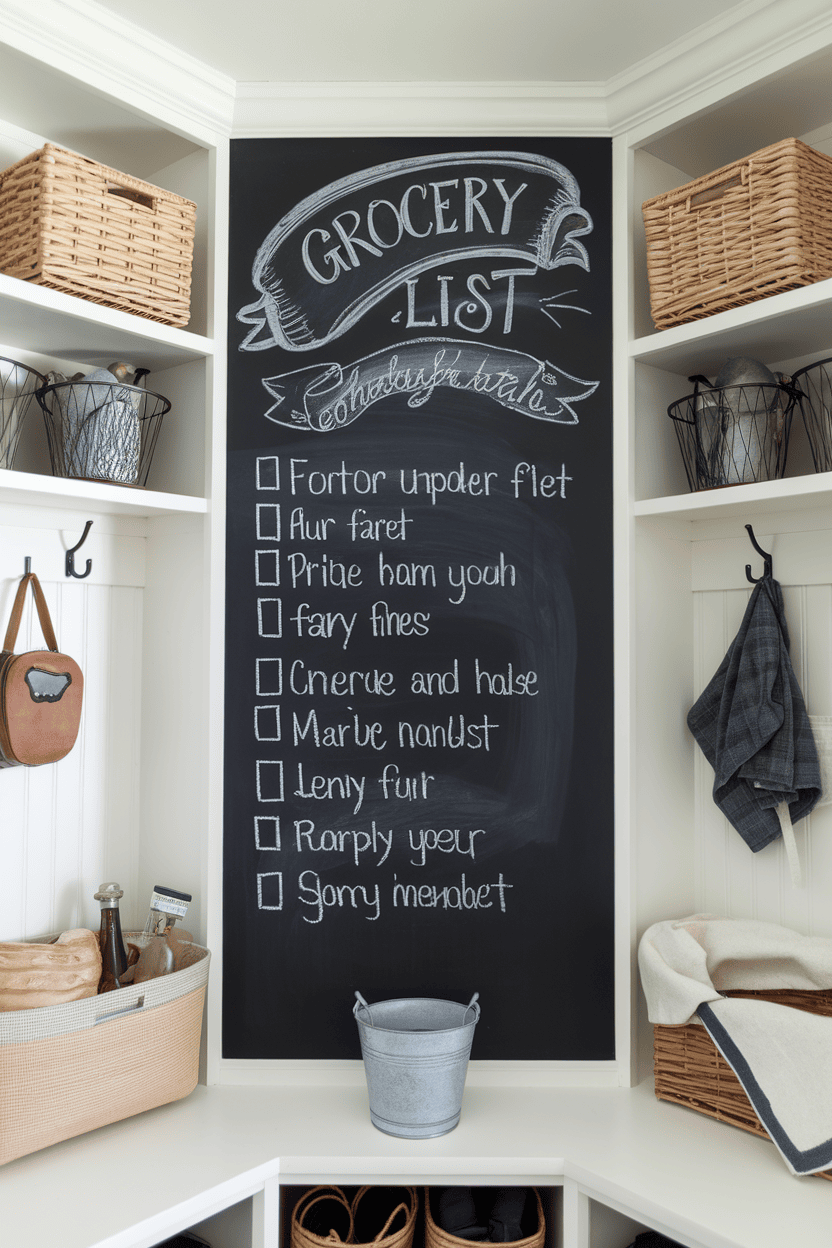 GROCERY
LIST
Fortor unpoler flet
Aur faret
Pribe ham youh
fary fines
Cnerue and halse
Marive nanlist
Leny fuir
Rarply yoeur
Sgomy menabet